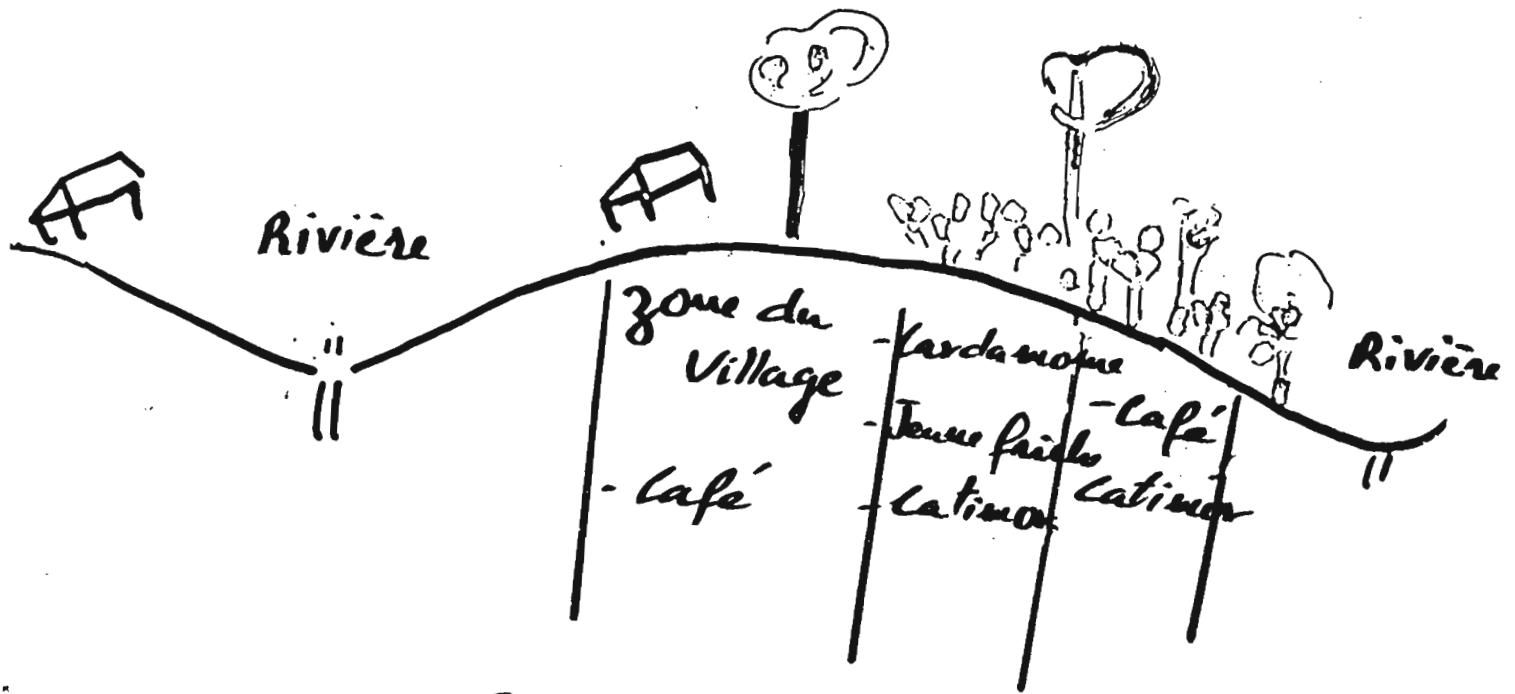 Rivière
Zone du
Village
- Café
- Kardamome
- Jeune friche
- Catimor
- Café
Catimor
Rivière